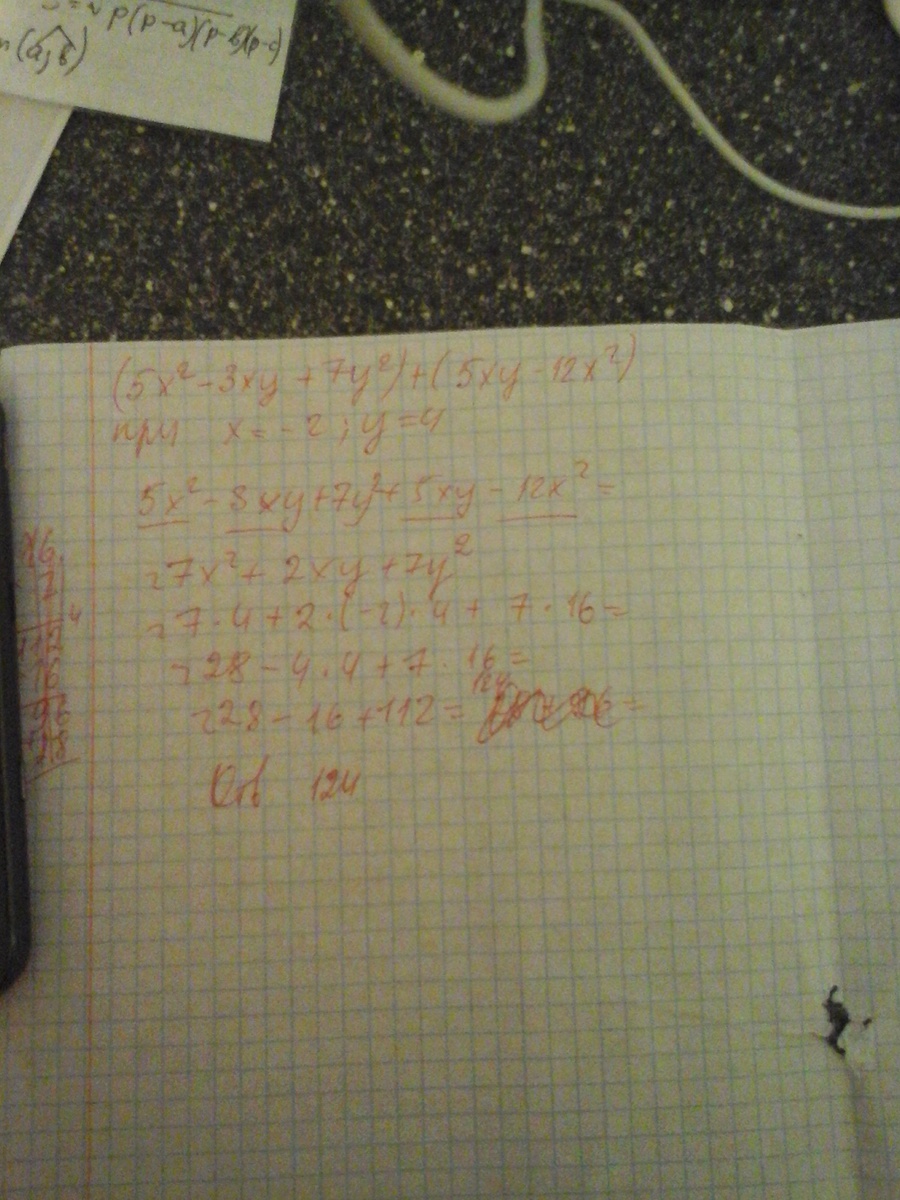 p(p-a)(p-b)(p-c)
(5x² - 3xy + 7y²) + (5xy - 12x²)
при x = -2; y = 4
5x² - 3xy + 7y² + 5xy - 12x² =
= 7x² + 2xy + 7y²
= 7 · 4 + 2 · (-2) · 4 + 7 · 16 =
= 28 - 4 · 4 + 7 · 16 =
= 28 - 16 + 112 = 124 =
Отв 124
16
7
112
16
96
28